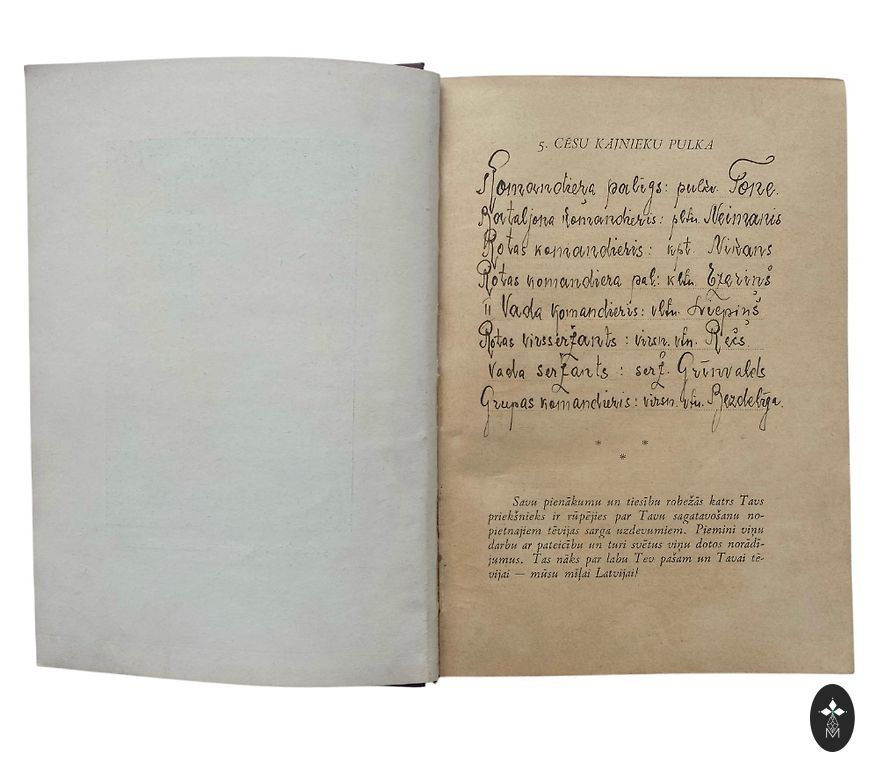 5. CĒSU KĀJNIEKU PULKA
Komandiera palīgs: pulkv. Tone.
Bataljona komandieris: pltn. Neimanis
Rotas komandieris: kpt. Nīmans
Rotas komandiera pal: v. ltn. Ezeriņš
II Vada komandieris: v. ltn. Sviepiņš
Rotas virsseržants: virsn. vtn. Riečs.
Vada seržants: serž. Grīnvalds
Grupas komandieris: virsn. vtn. Bezdelīga.
* *
*
Savu pienākumu un tiesību robežās katrs Tavs
priekšnieks ir rūpējies par Tavu sagatavošanu no-
pietnajiem tēvijas sarga uzdevumiem. Piemini viņu
darbu ar pateicību un turi svētus viņu dotos norādī-
jumus. Tas nāks par labu Tev pašam un Tavai tē-
vijai — mūsu mīļai Latvijai!
M